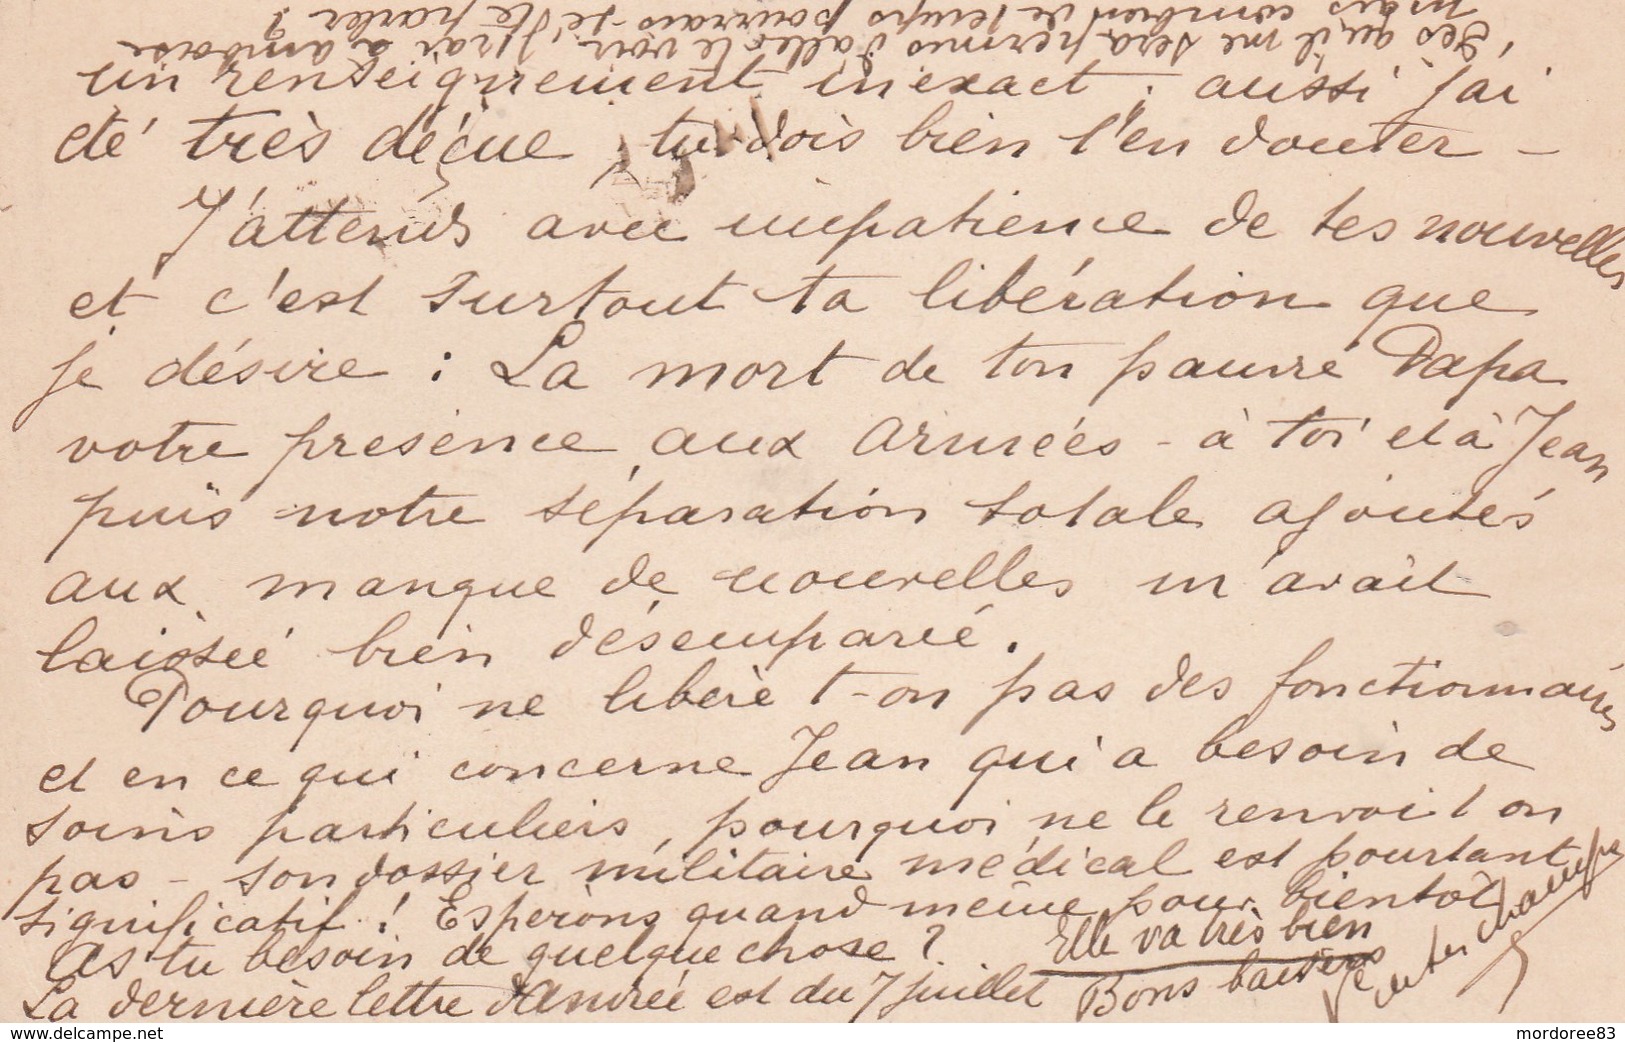 Dès qu'il me sera permis d'aller le voir, j'irai à amboise
mais combien de temps pourrais-je te parler ?
un renseignement inexact, aussi j'ai
été très déçue, tu dois bien t'en douter -
J'attends avec impatience de tes nouvelles
et c'est surtout ta libération que
je désire : La mort de ton pauvre Papa
votre présence aux armées - à toi et à Jean
puis notre séparation totale ajoutés
aux manque de nouvelles m'avait
laissée bien désemparée.
Pourquoi ne libère t-on pas des fonctionnaires
et en ce qui concerne Jean qui a besoin de
soins particuliers, pourquoi ne le renvoit on
pas - son dossier militaire médical est pourtant
significatif ! Espérons quand même pour bientôt
As tu besoin de quelque chose ?
Elle va très bien
La dernière lettre d'Andrée est du 7 juillet
Bons baisers
mordoree83
delcampe.net